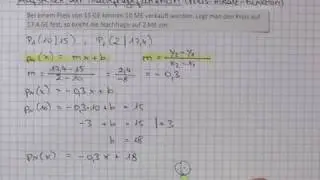 Bei einem Preis von 15 GE können 10 ME verkauft werden. Legt man den Preis auf
17,4 GE fest, so bricht die Nachfrage auf 2 ME ein.
P₁(10|15) , P₂(2|17,4)
pₙ(x) = mx+b m = y₂ - y₁ / x₂ - x₁
m = 17,4-15 / 2-10 = 2,4 / -8 = -0,3
pₙ(x) = -0,3x + b
pₙ(10) = -0,3·10 + b = 15
-3 + b = 15 |+3
b = 18
pₙ(x) = -0,3x + 18